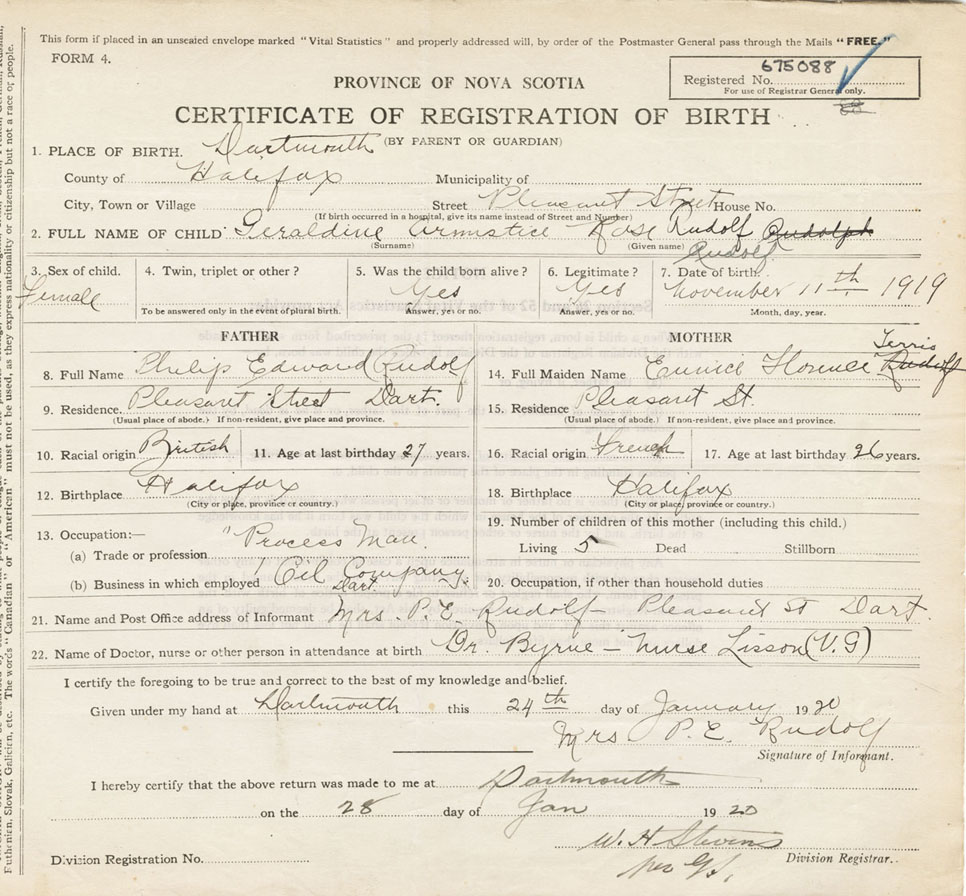 This form if placed in an unsealed envelope marked "Vital Statistics" and properly addressed will, by order of the Postmaster General pass through the Mails "FREE."
FORM 4.
675088
Registered No.
For use of Registrar General only.
PROVINCE OF NOVA SCOTIA
CERTIFICATE OF REGISTRATION OF BIRTH
(BY PARENT OR GUARDIAN)
1. PLACE OF BIRTH. Dartmouth
County of Halifax Municipality of
City, Town or Village Street Pleasant Street House No.
(If birth occurred in a hospital, give its name instead of Street and Number)
2. FULL NAME OF CHILD Geraldine Armistice Rose Rudolf Rudolph
(Surname) (Given name) Rudolf
3. Sex of child. Female
4. Twin, triplet or other?
To be answered only in the event of plural birth.
5. Was the child born alive? Yes
Answer, yes or no.
6. Legitimate? Yes
Answer, yes or no.
7. Date of birth. November 11th 1919
Month, day, year.
FATHER
8. Full Name Philip Edward Rudolf
9. Residence. Pleasant Street Dart.
(Usual place of abode.) If non-resident, give place and province.
10. Racial origin British 11. Age at last birthday 27 years.
12. Birthplace Halifax
(City or place, province or country.)
13. Occupation:—
(a) Trade or profession "Process Man."
(b) Business in which employed Oil Company. Dart.
MOTHER
14. Full Maiden Name Eunice Florence Rudolf Terris
15. Residence Pleasant St.
(Usual place of abode.) If non-resident, give place and province.
16. Racial origin French 17. Age at last birthday 26 years.
18. Birthplace Halifax
(City or place, province or country.)
19. Number of children of this mother (including this child.)
Living 5 Dead Stillborn
20. Occupation, if other than household duties
21. Name and Post Office address of Informant Mrs. P.E. Rudolf Pleasant St Dart.
22. Name of Doctor, nurse or other person in attendance at birth Dr. Byrne – Nurse Lisson (V.G)
I certify the foregoing to be true and correct to the best of my knowledge and belief.
Given under my hand at Dartmouth this 24th day of January 1920
Mrs P.E. Rudolf
Signature of Informant.
I hereby certify that the above return was made to me at Dartmouth
on the 28 day of Jan 1920
W. H. Stevens
Division Registration No. Division Registrar.
Ruthenien, Slovak, Galicien, etc. The words "Canadian" or "American" must not be used, as they express nationality or citizenship but not a race or people.